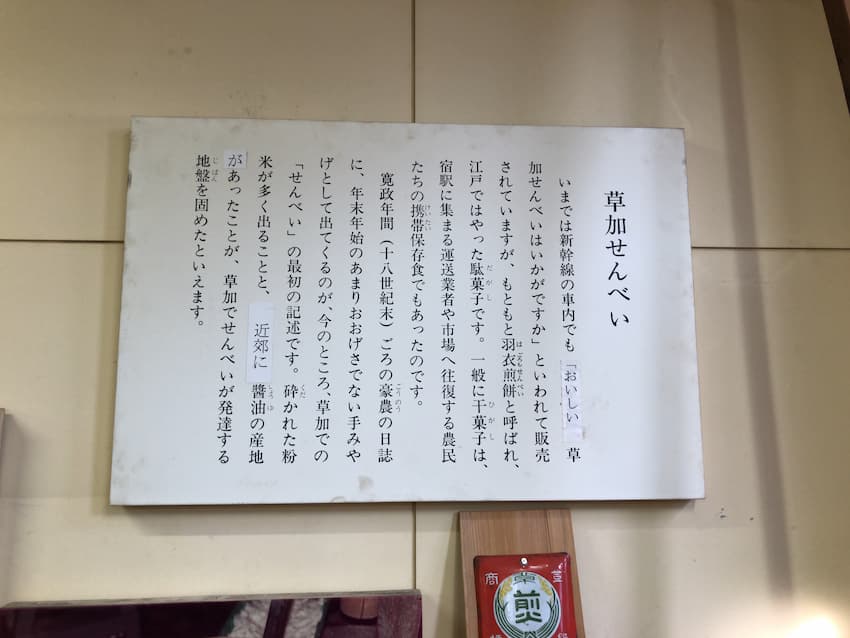 草加せんべい
いまでは新幹線の車内でも「おいしい 草
加せんべいはいかがですか」といわれて販売
されていますが、もともと羽衣煎餅と呼ばれ、
江戸ではやった駄菓子です。一般に干菓子は、
宿駅に集まる運送業者や市場へ往復する農民
たちの携帯保存食でもあったのです。
寛政年間(十八世紀末)ごろの豪農の日誌
に、年末年始のあまりおおげさでない手みや
げとして出てくるのが、今のところ、草加での
「せんべい」の最初の記述です。砕かれた粉
米が多く出ることと、近郊に醬油の産地
があったことが、草加でせんべいが発達する
地盤を固めたといえます。
商 草 煎